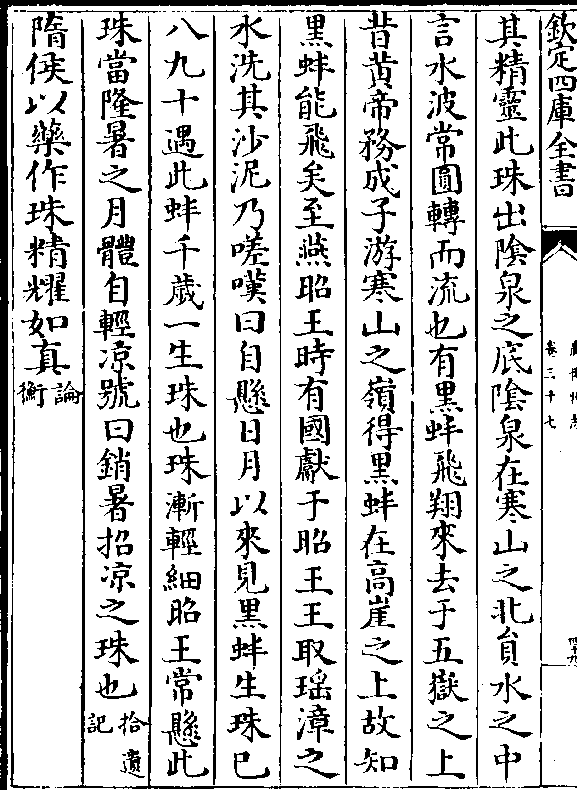 欽定四庫全書
卷三十七
其精靈此珠出陰泉之底陰泉在寒山之北員水之中
言水波常圓轉而流也有黑蚌飛翔來去于五嶽之上
昔黃帝務成子游寒山之嶺得黑蚌在高崖之上故知
黑蚌能飛矣至燕昭王時有國獻于昭王王取瑤漳之
水洗其沙泥乃嗟嘆曰自懸日月以來見黑蚌生珠已
八九十遇此蚌千歲一生珠也珠漸輕細昭王常懸此
珠當隆暑之月體自輕凉號曰銷暑招凉之珠也拾遺記
隋侯以藥作珠精耀如真論衡